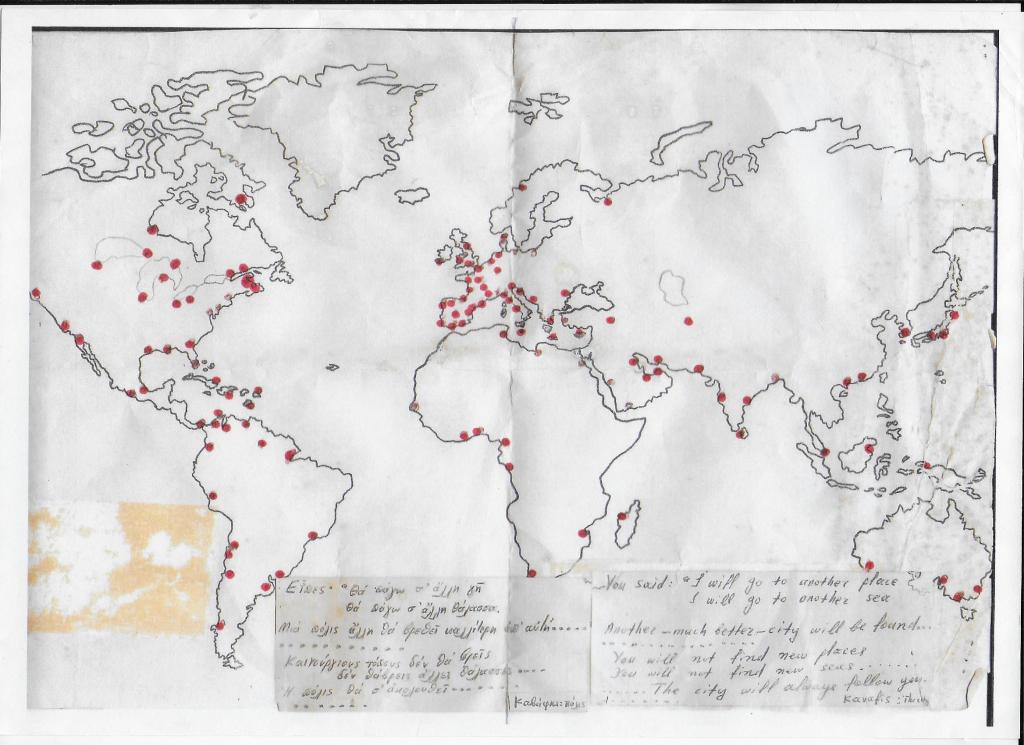 Εἶπες· "Θά πάγω σ' ἄλλη γῆ
θά πάγω σ' ἄλλη θάλασσα.
Μιά πόλις ἄλλη θά βρεθεῖ καλλίτερη ἀπ' αὐτή......
..................
Καινούργιους τόπους δέν θά βρεῖς
δέν θάβρεις ἄλλες θάλασσες ....
Ἡ πόλις θά σ' ἀκολουθεῖ.......
.......
Καβάφης:
You said: "I will go to another place
I will go to another sea
Another-much better-city will be found...
..................
You will not find new places
You will not find new seas.......
..... The city will always follow you.
!......
Kavafis: